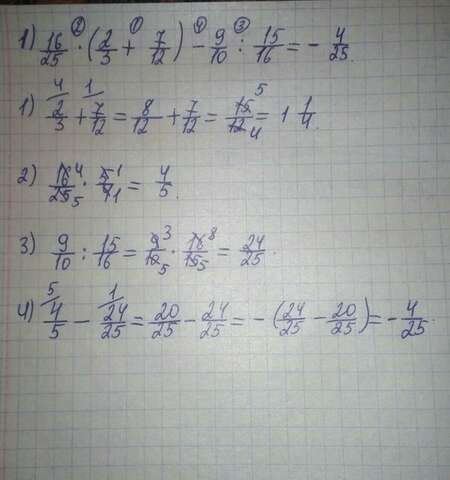 1) 16/25 ② · (2/3 + ① 7/12) − ④ 9/10 : ③ 15/16 = − 4/25.
1) 2/3 ⁴ + 7/12 ¹ = 8/12 + 7/12 = 15/12 5/4 = 1 1/4.
2) 16/25 4/5 · 5/4 1/1 = 4/5.
3) 9/10 : 15/16 = 9/10 3/5 · 16/15 8/5 = 24/25.
4) 4/5 ⁵ − 24/25 ¹ = 20/25 − 24/25 = − (24/25 − 20/25) = − 4/25.